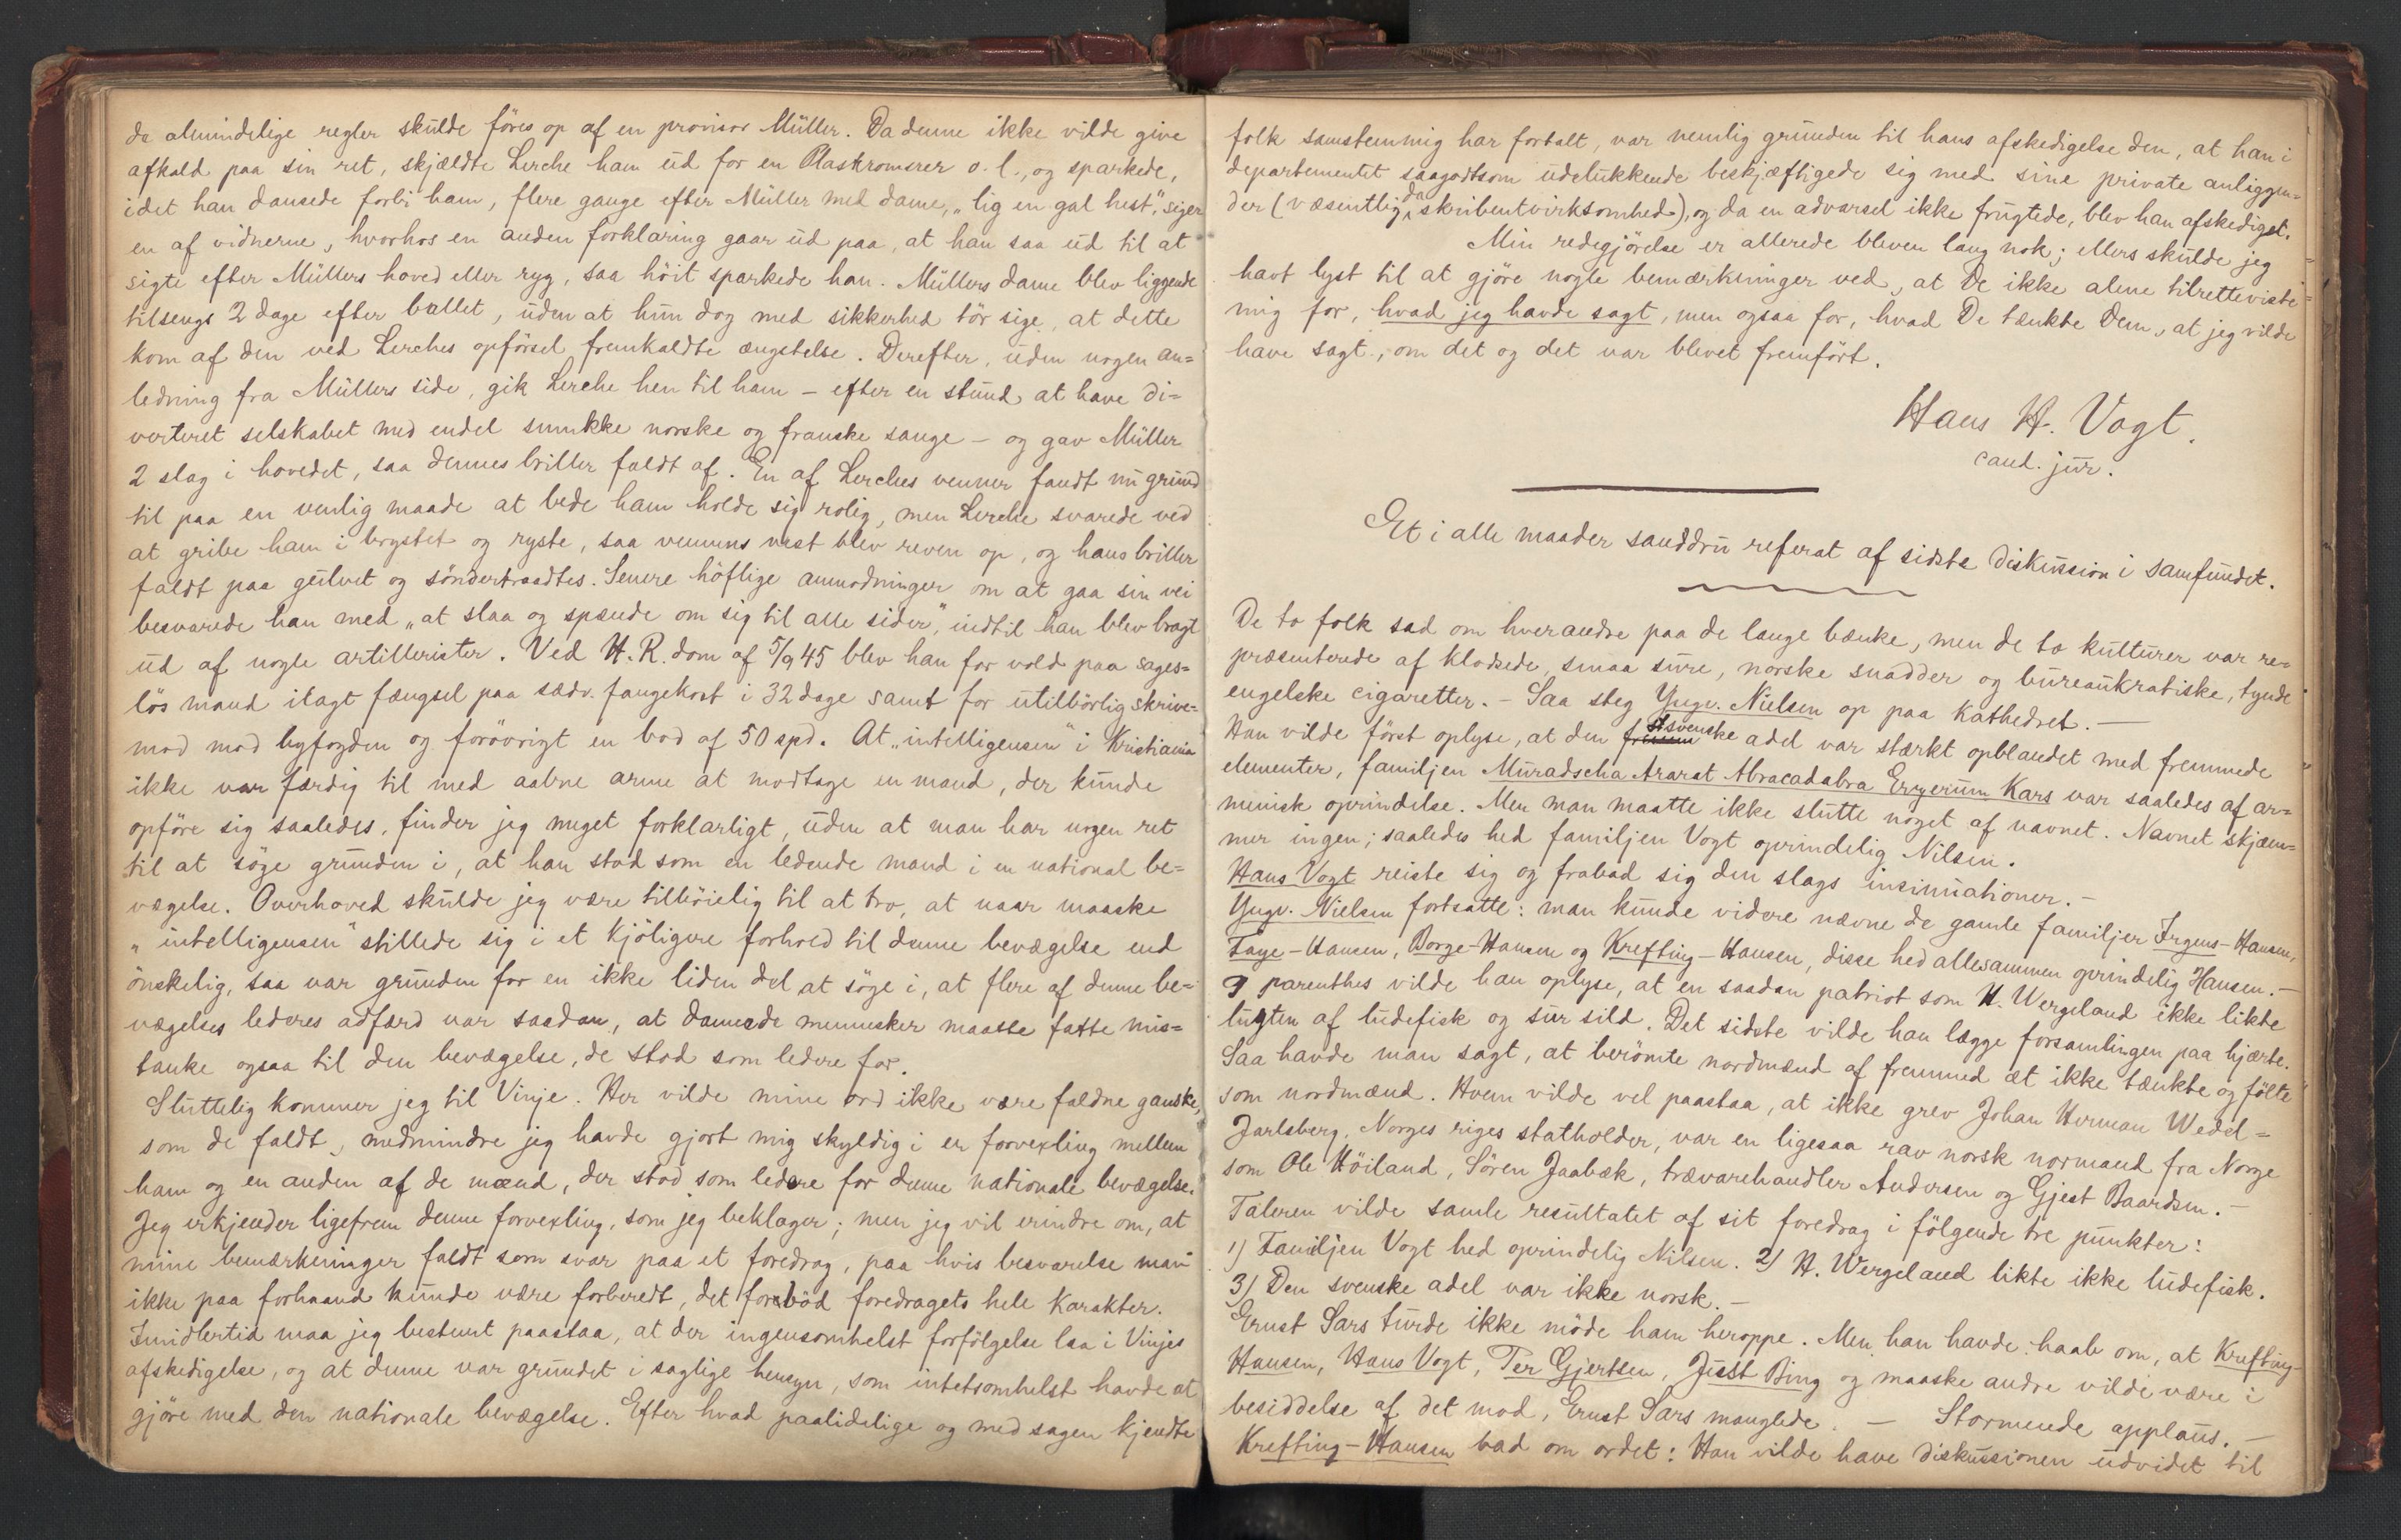 de almindelige regler skulde föres op af en provisor Müller. Da denne ikke vilde give
afkald paa sin ret, skjældte Lerche ham ud for en Plaskromerer o. l., og sparkede,
idet han dansede forbi ham, flere gange efter Müller med dame, „lig en gal hest", siger
en af vidnerne, hvorhos en anden forklaring gaar ud paa, at han saa ud til at
sigte efter Müllers hoved eller ryg, saa höit sparkede han. Müllers dame blev liggende
tilsengs 2 dage efter ballet, uden at hun dog med sikkerhed tör sige, at dette
kom af den ved Lerches opförsel fremkaldte ængstelse. Derefter, uden nogen an=
ledning fra Müllers side, gik Lerche hen til ham – efter en stund at have di=
verteret selskabet med endel smukke norske og franske sange – og gav Müller
2 slag i hovedet, saa dennes briller faldt af. En af Lerches venner fandt nu grund
til paa en venlig maade at bede ham holde sig rolig, men Lerche svarede ved
at gribe ham i brystet og ryste, saa vennens vest blev reven op, og hans briller
faldt paa gulvet og söndertraadtes. Senere höflige anmodninger om at gaa sin vei
besvarede han med „at slaa og spænde om sig til alle sider", indtil han blev bragt
ud af nogle artillerister. Ved H. R. dom af 5/9 45 blev han for vold paa sages=
lös mand ilagt fængsel paa sædv. fangekost i 32 dage samt for utilbörlig skrive=
mod mod byfogden og forövrigt en bod af 50 spd. At „intelligensen" i Kristiania
ikke var færdig til med aabne arme at modtage en mand, der kunde
opföre sig saaledes, finder jeg meget forklarligt, uden at man har nogen ret
til at söge grunden i, at han stod som en ledende mand i en national be=
vægelse. Overhoved skulde jeg være tilböielig til at tro, at naar maaske
„intelligensen" stillede sig i et kjöligere forhold til denne bevægelse end
önskelig, saa var grunden for en ikke liden del at söge i, at flere af denne be=
vægelses lederes adfærd var saadan, at dannede mennesker maatte fatte mis=
tanke ogsaa til den bevægelse, de stod som ledere for.
Sluttelig kommer jeg til Vinje. Her vilde mine ord ikke være faldne ganske,
som de faldt, medmindre jeg havde gjort mig skyldig i en forvexling mellem
ham og en anden af de mænd, der stod som ledere for denne nationale bevægelse.
Jeg erkjender ligefrem denne forvexling, som jeg beklager; men jeg vil erindre om, at
mine bemærkninger faldt som svar paa et foredrag, paa hvis besvarelse man
ikke paa forhaand kunde være forberedt, det forböd foredragets hele karakter.
Imidlertid maa jeg bestemt paastaa, at der ingensomhelst forfölgelse laa i Vinjes
afskedigelse, og at denne var grundet i saglige hensyn, som intetsomhelst havde at
gjöre med den nationale bevægelse. Efter hvad paalidelige og med sagen kjendte
folk samstemmig har fortalt, var nemlig grunden til hans afskedigelse den, at han i
departementet saagodtsom udelukkende beskjæftigede sig med sine private anliggen=
der (væsentlig da skribentvirksomhed), og da en advarsel ikke frugtede, blev han afskediget.
Min redegjörelse er allerede bleven lang nok; ellers skulde jeg
havt lyst til at gjöre nogle bemærkninger ved, at De ikke alene tilretteviste
mig for, hvad jeg havde sagt, men ogsaa for, hvad De tænkte Dem, at jeg vilde
have sagt, om det og det var blevet fremfört.
Hans H. Vogt.
cand. jur.
Et i alle maader sanddru referat af sidste diskussion i samfundet.
De to folk sad om hverandre paa de lange bænke, men de to kulturer var re=
præsenterede af klodsede, smaa sure, norske snadder og bureaukratiske, tynde
engelske cigaretter. – Saa steg Yngv. Nielsen op paa kathedret. –
Han vilde först oplyse, at den svenske adel var stærkt opblandet med fremmede
elementer, familjen Muradscha Ararat Abracadabra Erzerum Kars var saaledes af ar=
menisk oprindelse. Men man maatte ikke slutte noget af navnet. Navnet skjæm=
mer ingen; saaledes hed familjen Vogt oprindelig Nilsen.
Hans Vogt reiste sig og frabad sig den slags insinuationer. –
Yngv. Nielsen fortsatte: man kunde videre nævne de gamle familjer Irgens-Hansen,
Faye-Hansen, Borge-Hansen og Krefting-Hansen, disse hed allesammen oprindelig Hansen. –
I parenthes vilde han oplyse, at en saadan patriot som H. Wergeland ikke likte
lugten af ludefisk og sur sild. Det sidste vilde han lægge forsamlingen paa hjærte.
Saa havde man sagt, at berömte nordmænd af fremmed æt ikke tænkte og fölte
som nordmænd. Hvem vilde vel paastaa, at ikke grev Johan Herman Wedel=
Jarlsberg, Norges riges statholder, var en ligesaa rav norsk normand fra Norge
som Ole Höiland, Sören Jaabæk, trævarehandler Andersen og Gjest Baardsen. –
Taleren vilde samle resultatet af sit foredrag i fölgende tre punkter:
1) Familjen Vogt hed oprindelig Nilsen. 2) H. Wergeland likte ikke ludefisk.
3) Den svenske adel var ikke norsk. –
Ernst Sars turde ikke möde ham heroppe. Men han havde haab om, at Krefting-
Hansen, Hans Vogt, Ter Gjertsen, Just Bing og maaske andre vilde være i
besiddelse af det mod, Ernst Sars manglede. – Stormende applaus. –
Krefting-Hansen bad om ordet: Han vilde have diskussionen udvidet til